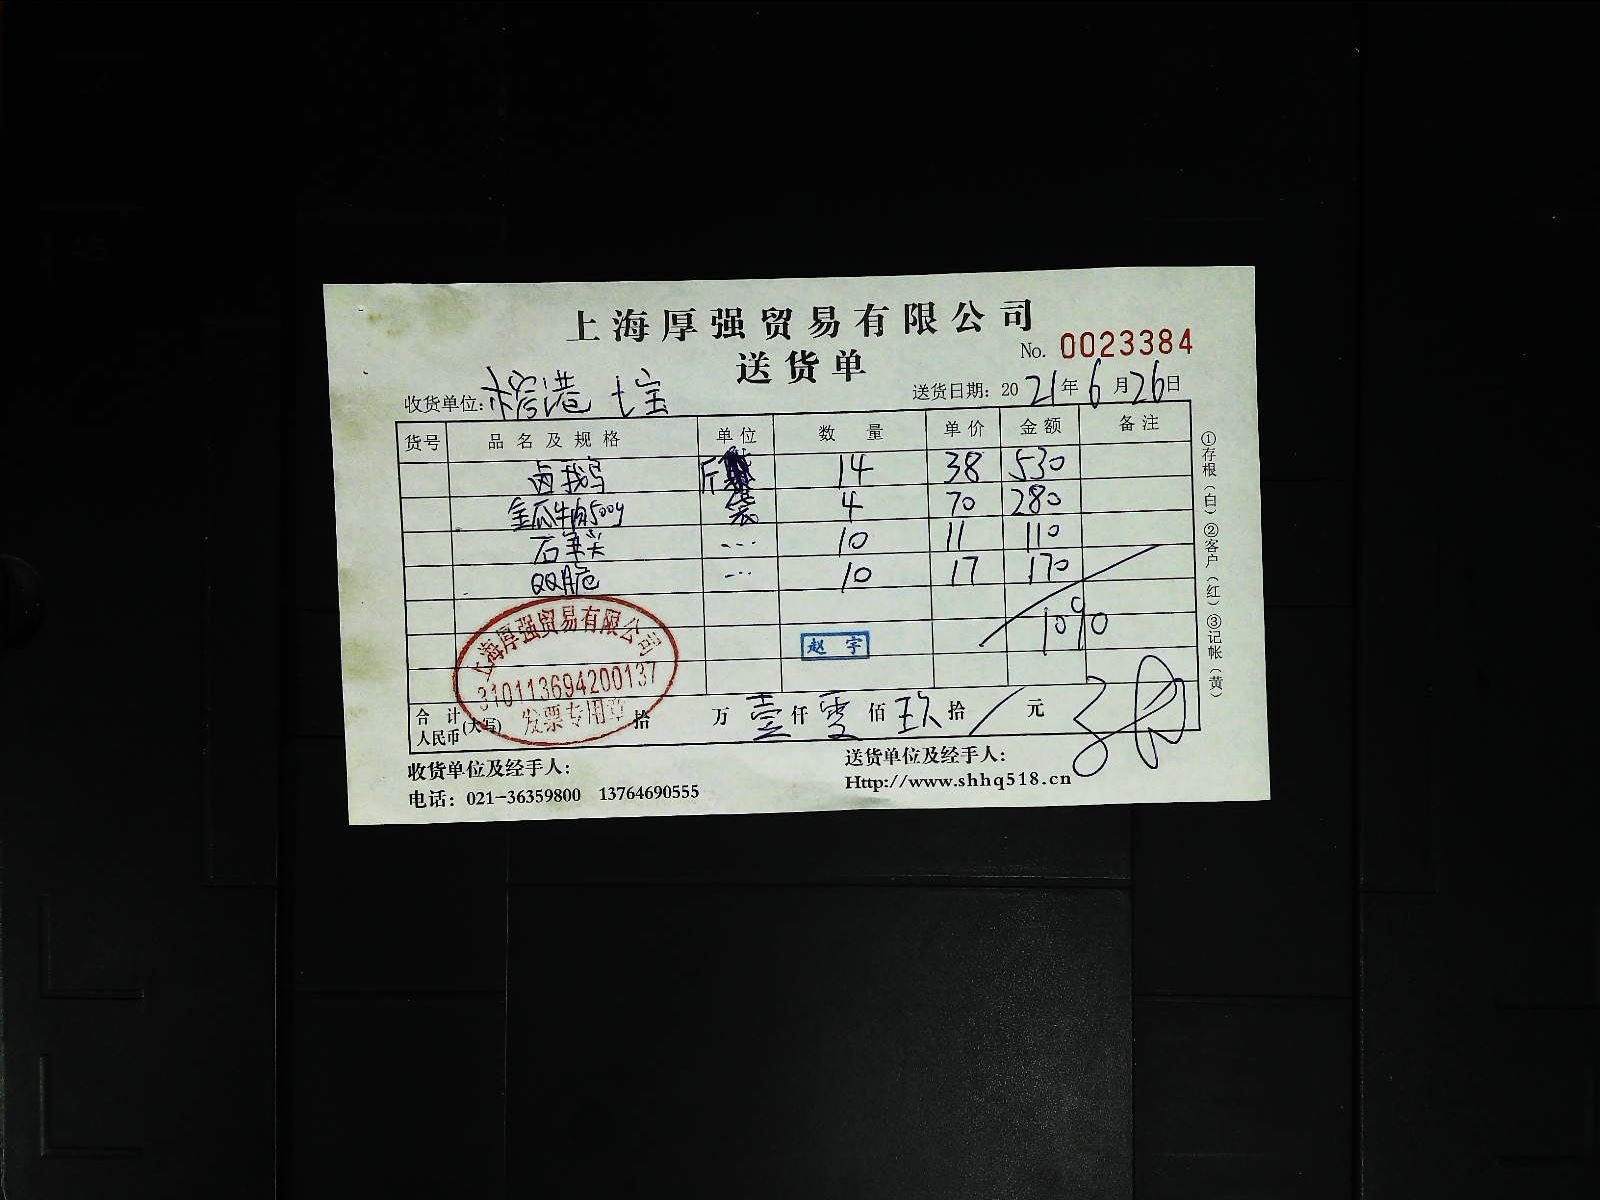 上海厚强贸易有限公司
送货单
No. 0023384
收货单位: 港 七宝
送货日期: 2021年6月26日
货号 品名及规格 单位 数量 单价 金额 备注
卤鹅 斤 14 38 530
金瓜牛肉500g 袋 4 70 280
石 10 11 110
QQ脆 10 17 170
1090
赵宇
上海厚强贸易有限公司
310113694200137
发票专用章
合计人民币(大写) 拾 万 壹仟零佰玖拾 元
收货单位及经手人:
送货单位及经手人:
电话: 021-36359800 13764690555
Http://www.shhq518.cn
①存根(白)②客户(红)③记帐(黄)